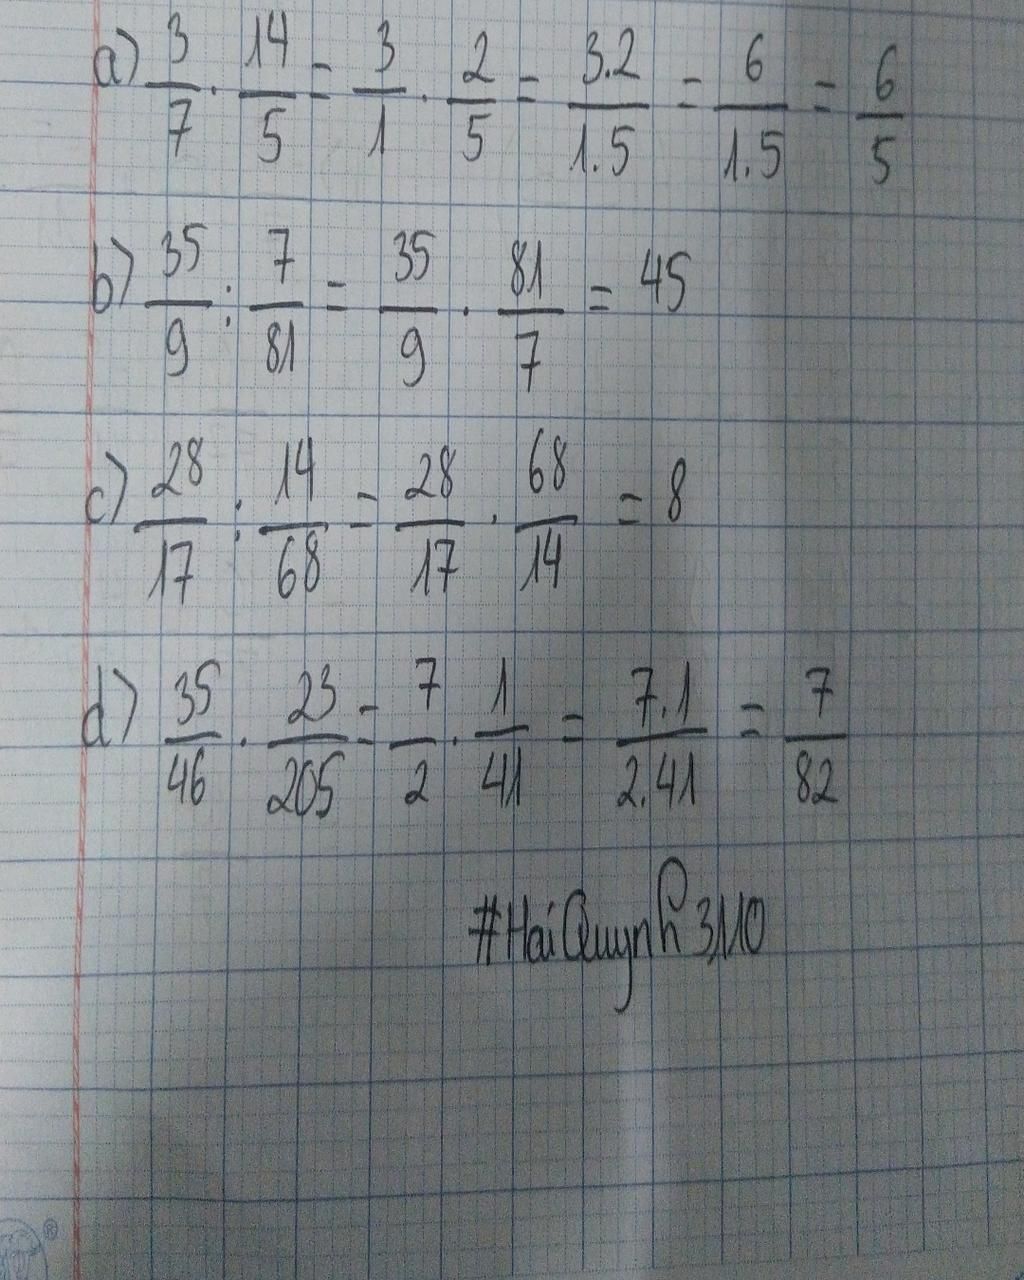 a) 3/7 . 14/5 = 3/1 . 2/5 = 3.2/1.5 = 6/1.5 = 6/5
b) 35/9 : 7/81 = 35/9 . 81/7 = 45
c) 28/17 : 14/68 = 28/17 . 68/14 = 8
d) 35/46 . 23/205 = 7/2 . 1/41 = 7.1/2.41 = 7/82
#HaiQuynh